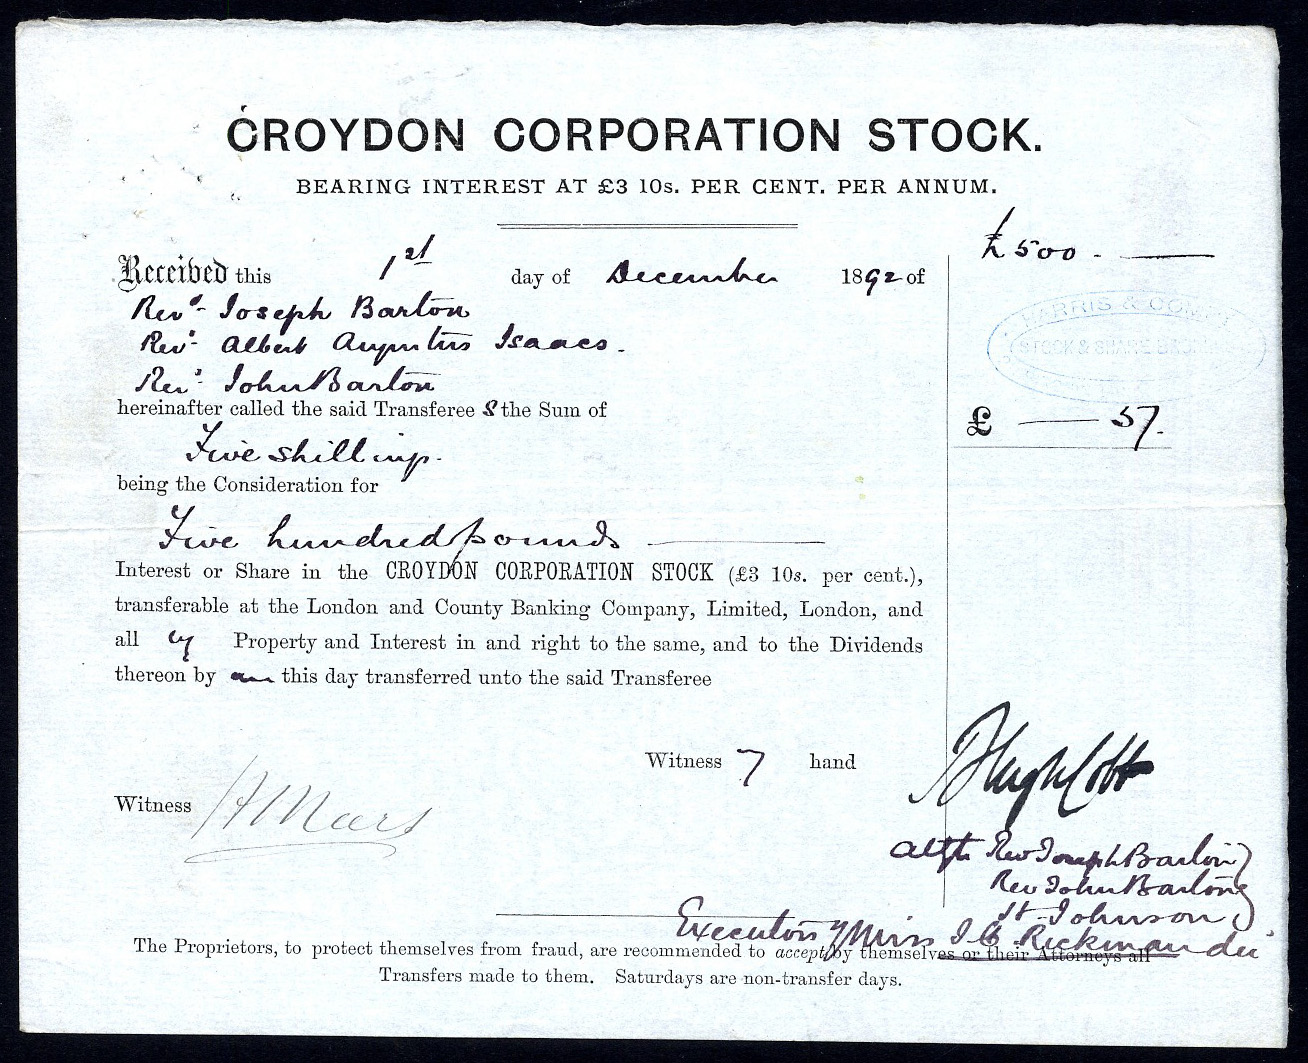 CROYDON CORPORATION STOCK.
BEARING INTEREST AT £3 10s. PER CENT. PER ANNUM.
£500 -
Received this 1st day of December 1892 of
Revd. Joseph Barton
Revd. Albert Augustus Isaacs.
Revd. John Barton
HARRIS & COMP
STOCK & SHARE
hereinafter called the said Transferee s the Sum of
£ 5/.
Five shillings.
being the Consideration for
Five hundred pounds
Interest or Share in the CROYDON CORPORATION STOCK (£3 10s. per cent.),
transferable at the London and County Banking Company, Limited, London, and
all Property and Interest in and right to the same, and to the Dividends
thereon by this day transferred unto the said Transferee
Witness hand
Hugh Cobb
Witness
Rev Joseph Barton
Rev John Barton
Johnson
Executors of Miss Rickman
The Proprietors, to protect themselves from fraud, are recommended to accept by themselves or their Attorneys all
Transfers made to them. Saturdays are non-transfer days.